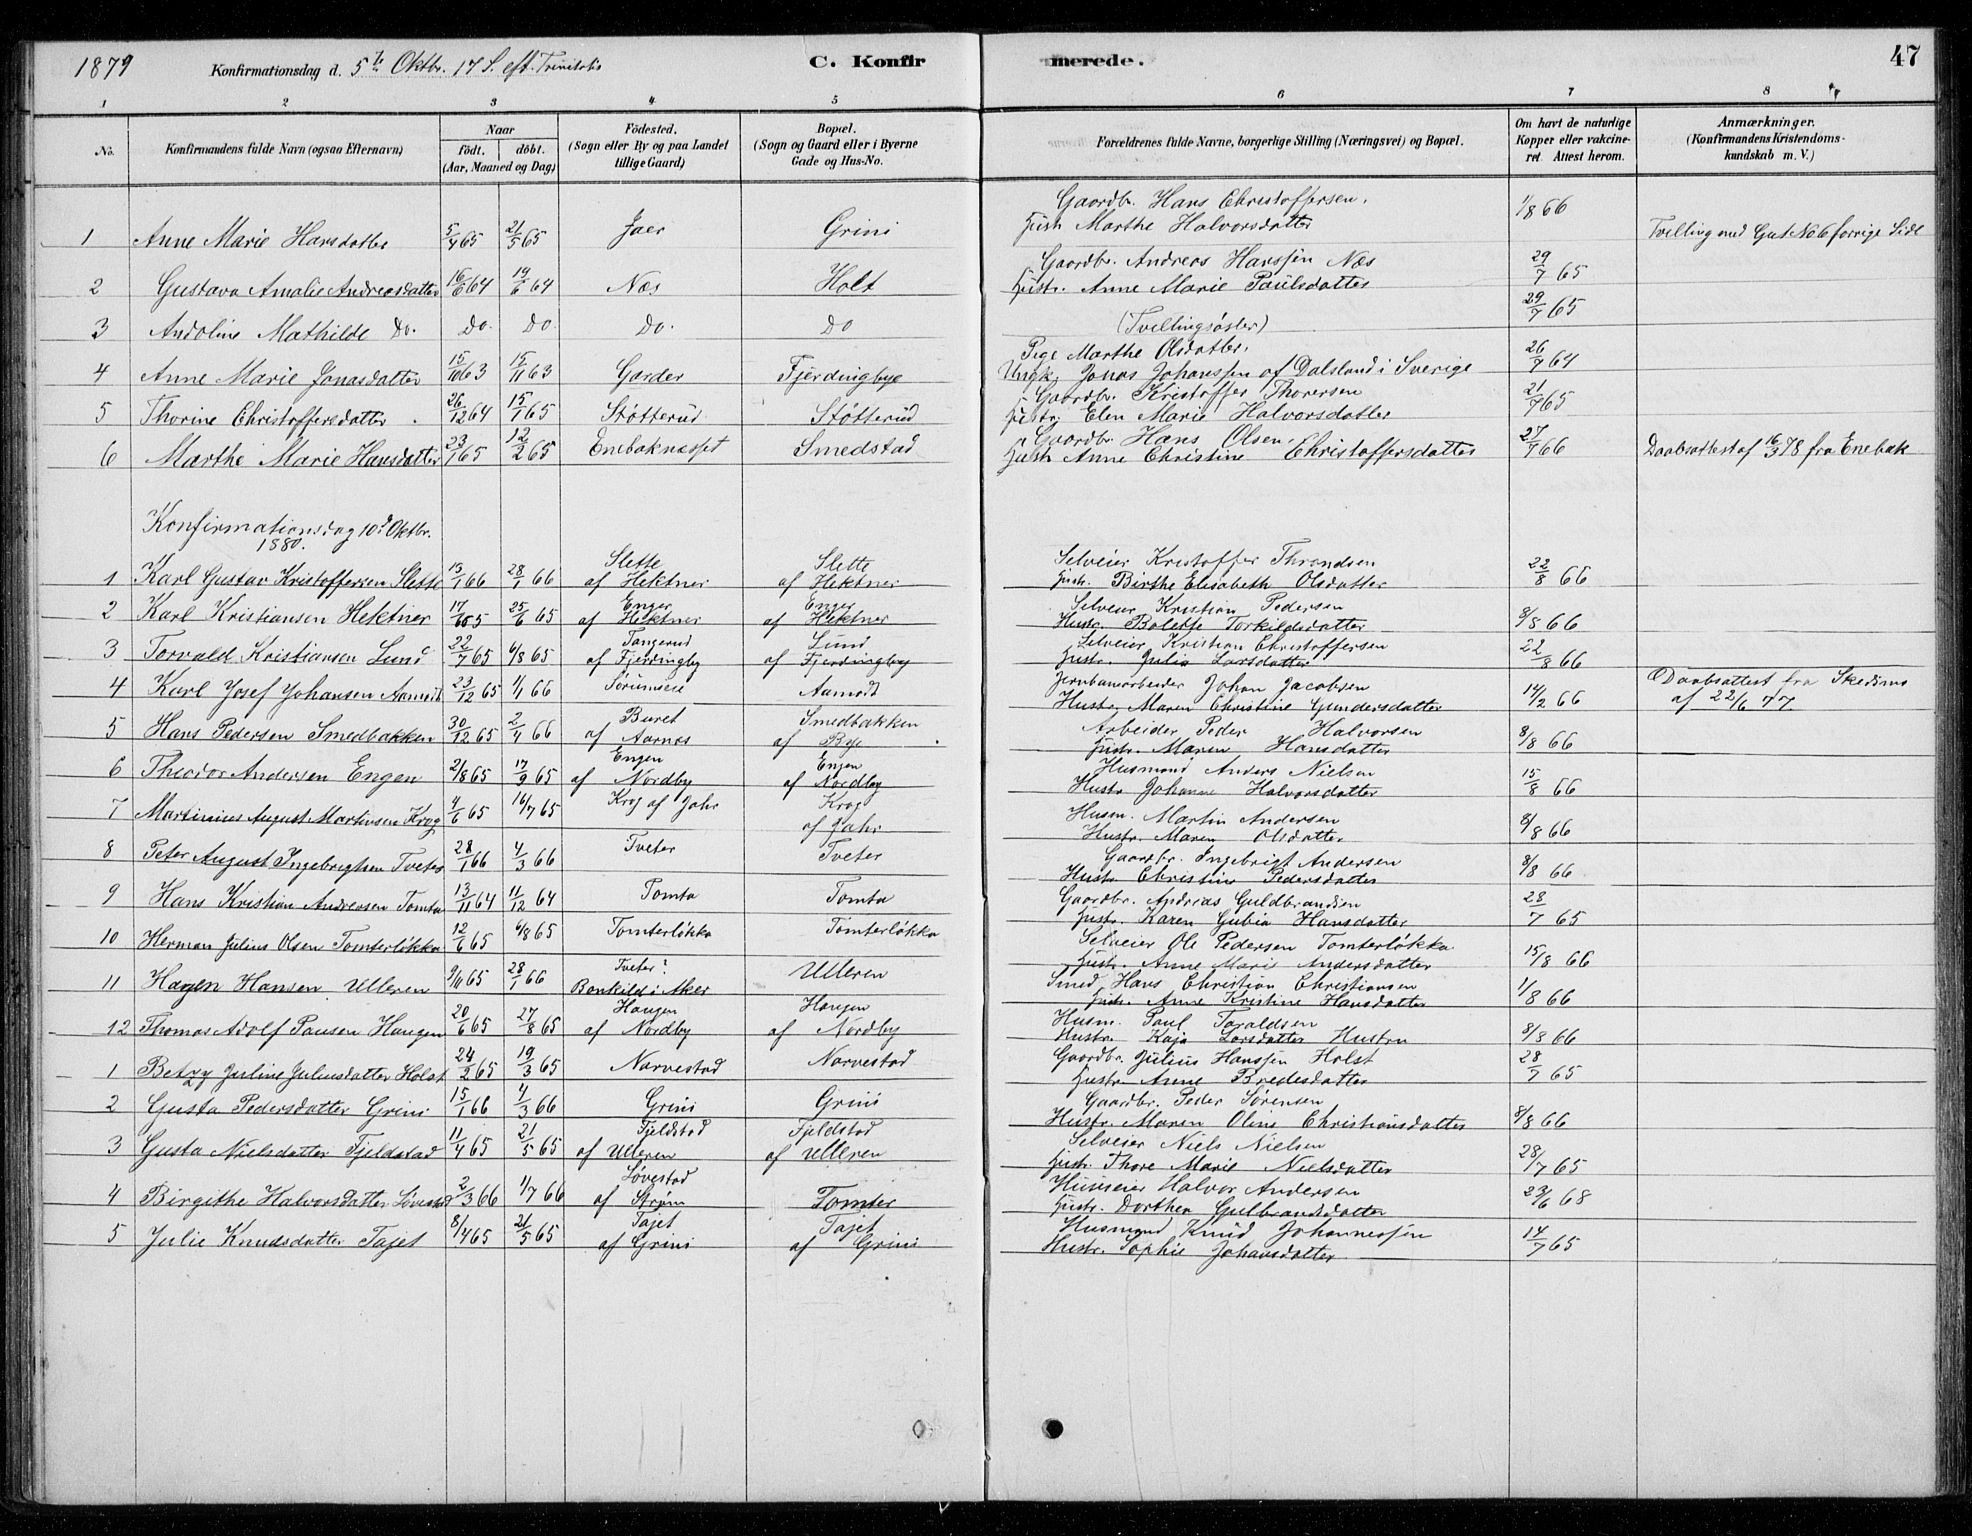 1879 Konfirmationsdag d. 5te Oktbr. 17 S. eft. Trinitatis C. Konfirmerede. 47
1 2 3 4 5 6 7 8
No. Konfirmandens fulde Navn (ogsaa Efternavn) Naar födt. döbt. (Aar, Maaned og Dag) Födested. (Sogn eller By og paa Landet tillige Gaard) Bopæl. (Sogn og Gaard eller i Byerne Gade og Hus-No. Forældrenes fulde Navne, borgerlige Stilling (Næringsvei) og Bopæl. Om havt de naturlige Kopper eller vakcineret. Attest herom. Anmærkninger. (Konfirmandens Kristendomskundskab m. V.)
Gaardbr. Hans Christoffersen.
1 Anne Marie Hansdatter 5/4 65 21/5 65 Jaer Grini Hustr. Marthe Halvorsdatter 1/8 66 Tvilling med Gut No 6 forrige Side
Gaardbr. Andreas Hanssen Næs
2 Gustava Amalie Andreasdatter 16/6 64 19/6 64 Næs Holt Hustr. Anne Marie Paulsdatter 29/7 65
3 Andoline Mathilde Do. Do. Do Do. Do (Tvillingsøster) 29/7 65
Pige Marthe Olsdatter.
4 Anne Marie Jonasdatter 15/10 63 15/11 63 Garder Fjerdingbye Ungk. Jonas Johanssen af Dalsland i Sverige 26/7 64
Gaardbr. Kristoffer Thoresen
5 Thorine Christoffersdatter 26/12 64 15/1 65 Støtterud Støtterud Hustr. Elen Marie Halvorsdatter 21/7 65
Gaardbr. Hans Olsen.
6 Marthe Marie Hansdatter 23/1 65 12/2 65 Enebaknesset Smedstad Hustr. Anne Christine Christoffersdatter 27/7 66 Daabsattest af 16/3 78 fra Enebak
Konfirmationsdag 10d Oktbr.
1880.
Slette Slette Selveier Kristoffer Thrandsen
1 Karl Gustav Kristoffersen Slette 13/1 66 28/1 66 af Hektner af Hektner Hustr. Birthe Elisabeth Olsdatter 22/8 66
Enger Enger Selveier Kristian Pedersen
2 Karl Kristiansen Hektner 17/ 65 25/6 65 af Hektner af Hektner Hustr. Bolette Torkildsdatter 8/8 66
Tangerud Lund Selveier Kristian Christoffersen
3 Torvald Kristiansen Lund 22/7 65 6/8 65 af Fjerdingby af Fjerdingby Hustr. Julie Larsdatter 22/8 66
Jernbanearbeider Johan Jacobsen Daabsattest fra Skedsmo
4 Karl Josef Johansen Aamodt 23/12 65 1/1 66 Aamodt Hustr. Maren Christine Gundersdatter 14/2 66 af 22/6 77
Buret Smedbakken Arbeider Peder Halvorsen
5 Hans Pedersen Smedbakken 30/12 65 2/4 66 af Aarnæs af Hustr. Maren Hansdatter 8/8 66
Engen Engen Husmand Anders Nielsen
6 Theodor Andersen Engen 2/8 65 17/9 65 af Nordby af Nordby Hustr Johanne Halvorsdatter 15/8 66
Krog Husm. Martin Andersen
7 Martinius August Martinsen Krog 4/6 65 16/7 65 Krog af Jahr af Jahr Hustr. Maren Olsdatter 8/8 66
Gaardbr. Ingebrigt Andersen
8 Peter August Ingebrigtsen Tveter 28/1 66 4/3 66 Tveter Tveter Hustr Christine Pedersdatter 8/8 66
Gaardbr. Andreas Guldbrandsen
9 Hans Kristian Andreasen Tomta 13/11 64 11/12 64 Tomta Tomta Hustr. Karen Gubia Hansdatter 28/7 65
Selveier Ole Pedersen Tomterløkka
10 Herman Julius Olsen Tomterløkka 12/6 65 6/8 65 Tomterløkka Tomterløkka Hustr. Anne Marie Andersdatter 15/8 66
Tveter? Smed Hans Christian Christiansen
11 Hagen Hansen Ulleren 9/11 65 28/1 66 i Aker Ulleren Hustr. Anne Kristine Hansdatter 1/8 66
Haugen Haugen Husm. Paul Taraldsen
12 Thomas Adolf Paulsen Haugen 20/6 65 27/8 65 af Nordby af Nordby Hustr. Kaja Larsdatter Hustru 8/8 66
Gaardbr. Julius Hanssen Holst
1 Betzy Juline Juliusdatter Holst 24/2 65 19/3 65 Narvestad Narvestad Hustr. Anne Bredesdatter 28/7 65
Gaardbr. Peder Sørensen
2 Gusta Pedersdatter Grini 15/1 66 4/3 66 Grini Grini Hustr. Maren Oline Christiansdatter 8/8 66
Fjeldstad Fjeldstad Selveier Niels Nielsen
3 Gusta Nielsdatter Fjeldstad 11/4 65 21/5 65 af Ulleren af Ulleren Hustr. Thore Marie Nielsdatter 28/7 65
Løvestad Huseier Halvor Andersen
4 Birgithe Halvorsdatter Løvestad 2/3 66 1/7 66 af Strøm Tomter Hustr. Dorthea Gulbrandsdatter 23/6 68
Tajet Tajet Husmand Knud Johannessen
5 Julie Knudsdatter Tajet 8/4 65 21/5 65 af Grini af Grini Hustr. Sophie Johansdatter 14/7 65